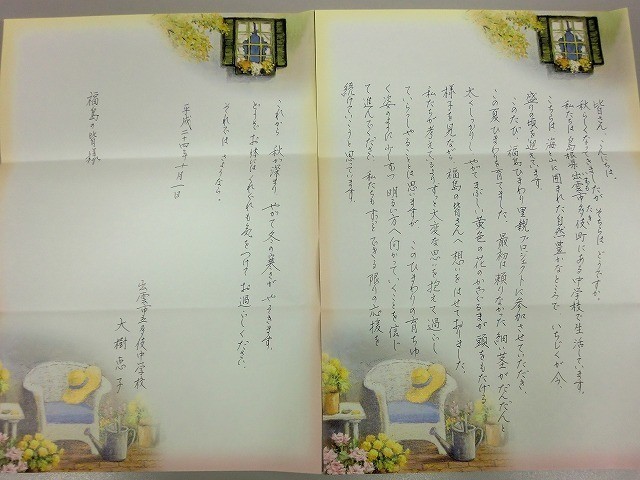 皆さん、こんにちは。
秋らしくなってきましたが、そちらはどうですか。
私たちは島根県出雲市多伎町にある中学校で生活しています。
こちらは海と山に囲まれた自然豊かなところで、いちじくが今
盛りの頃を迎えています。
このたび、福島ひまわり里親プロジェクトに参加させていただき、
この夏ひまわりを育てました。最初は頼りなかった細い茎がだんだん
太くしっかりし、やがてまぶしい黄色の花のかざぐるまが頭をもたげる
様子を見ながら、福島の皆さんへ想いをはせておりました。
私たちが考えているよりずっと大変な思いを抱えて過ごし
ていらっしゃることと思いますが、このひまわりの育ちゆ
く姿のように少しずつ明るい方へ向かっていくことを信じ
て進んでください。私たちもずっとできる限りの応援を
続けていこうと思っています。
これから秋が深まり、やがて冬の寒さがやってきます。
どうぞお体はくれぐれも気をつけてお過ごしください。
それでは、さようなら。
平成二十四年十月一日
出雲市立多伎中学校
大樹恵子
福島の皆様